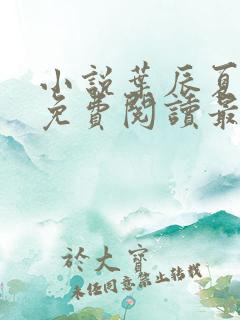 小說葉辰夏
免費閱讀最
於大寶
未經同意禁止轉載